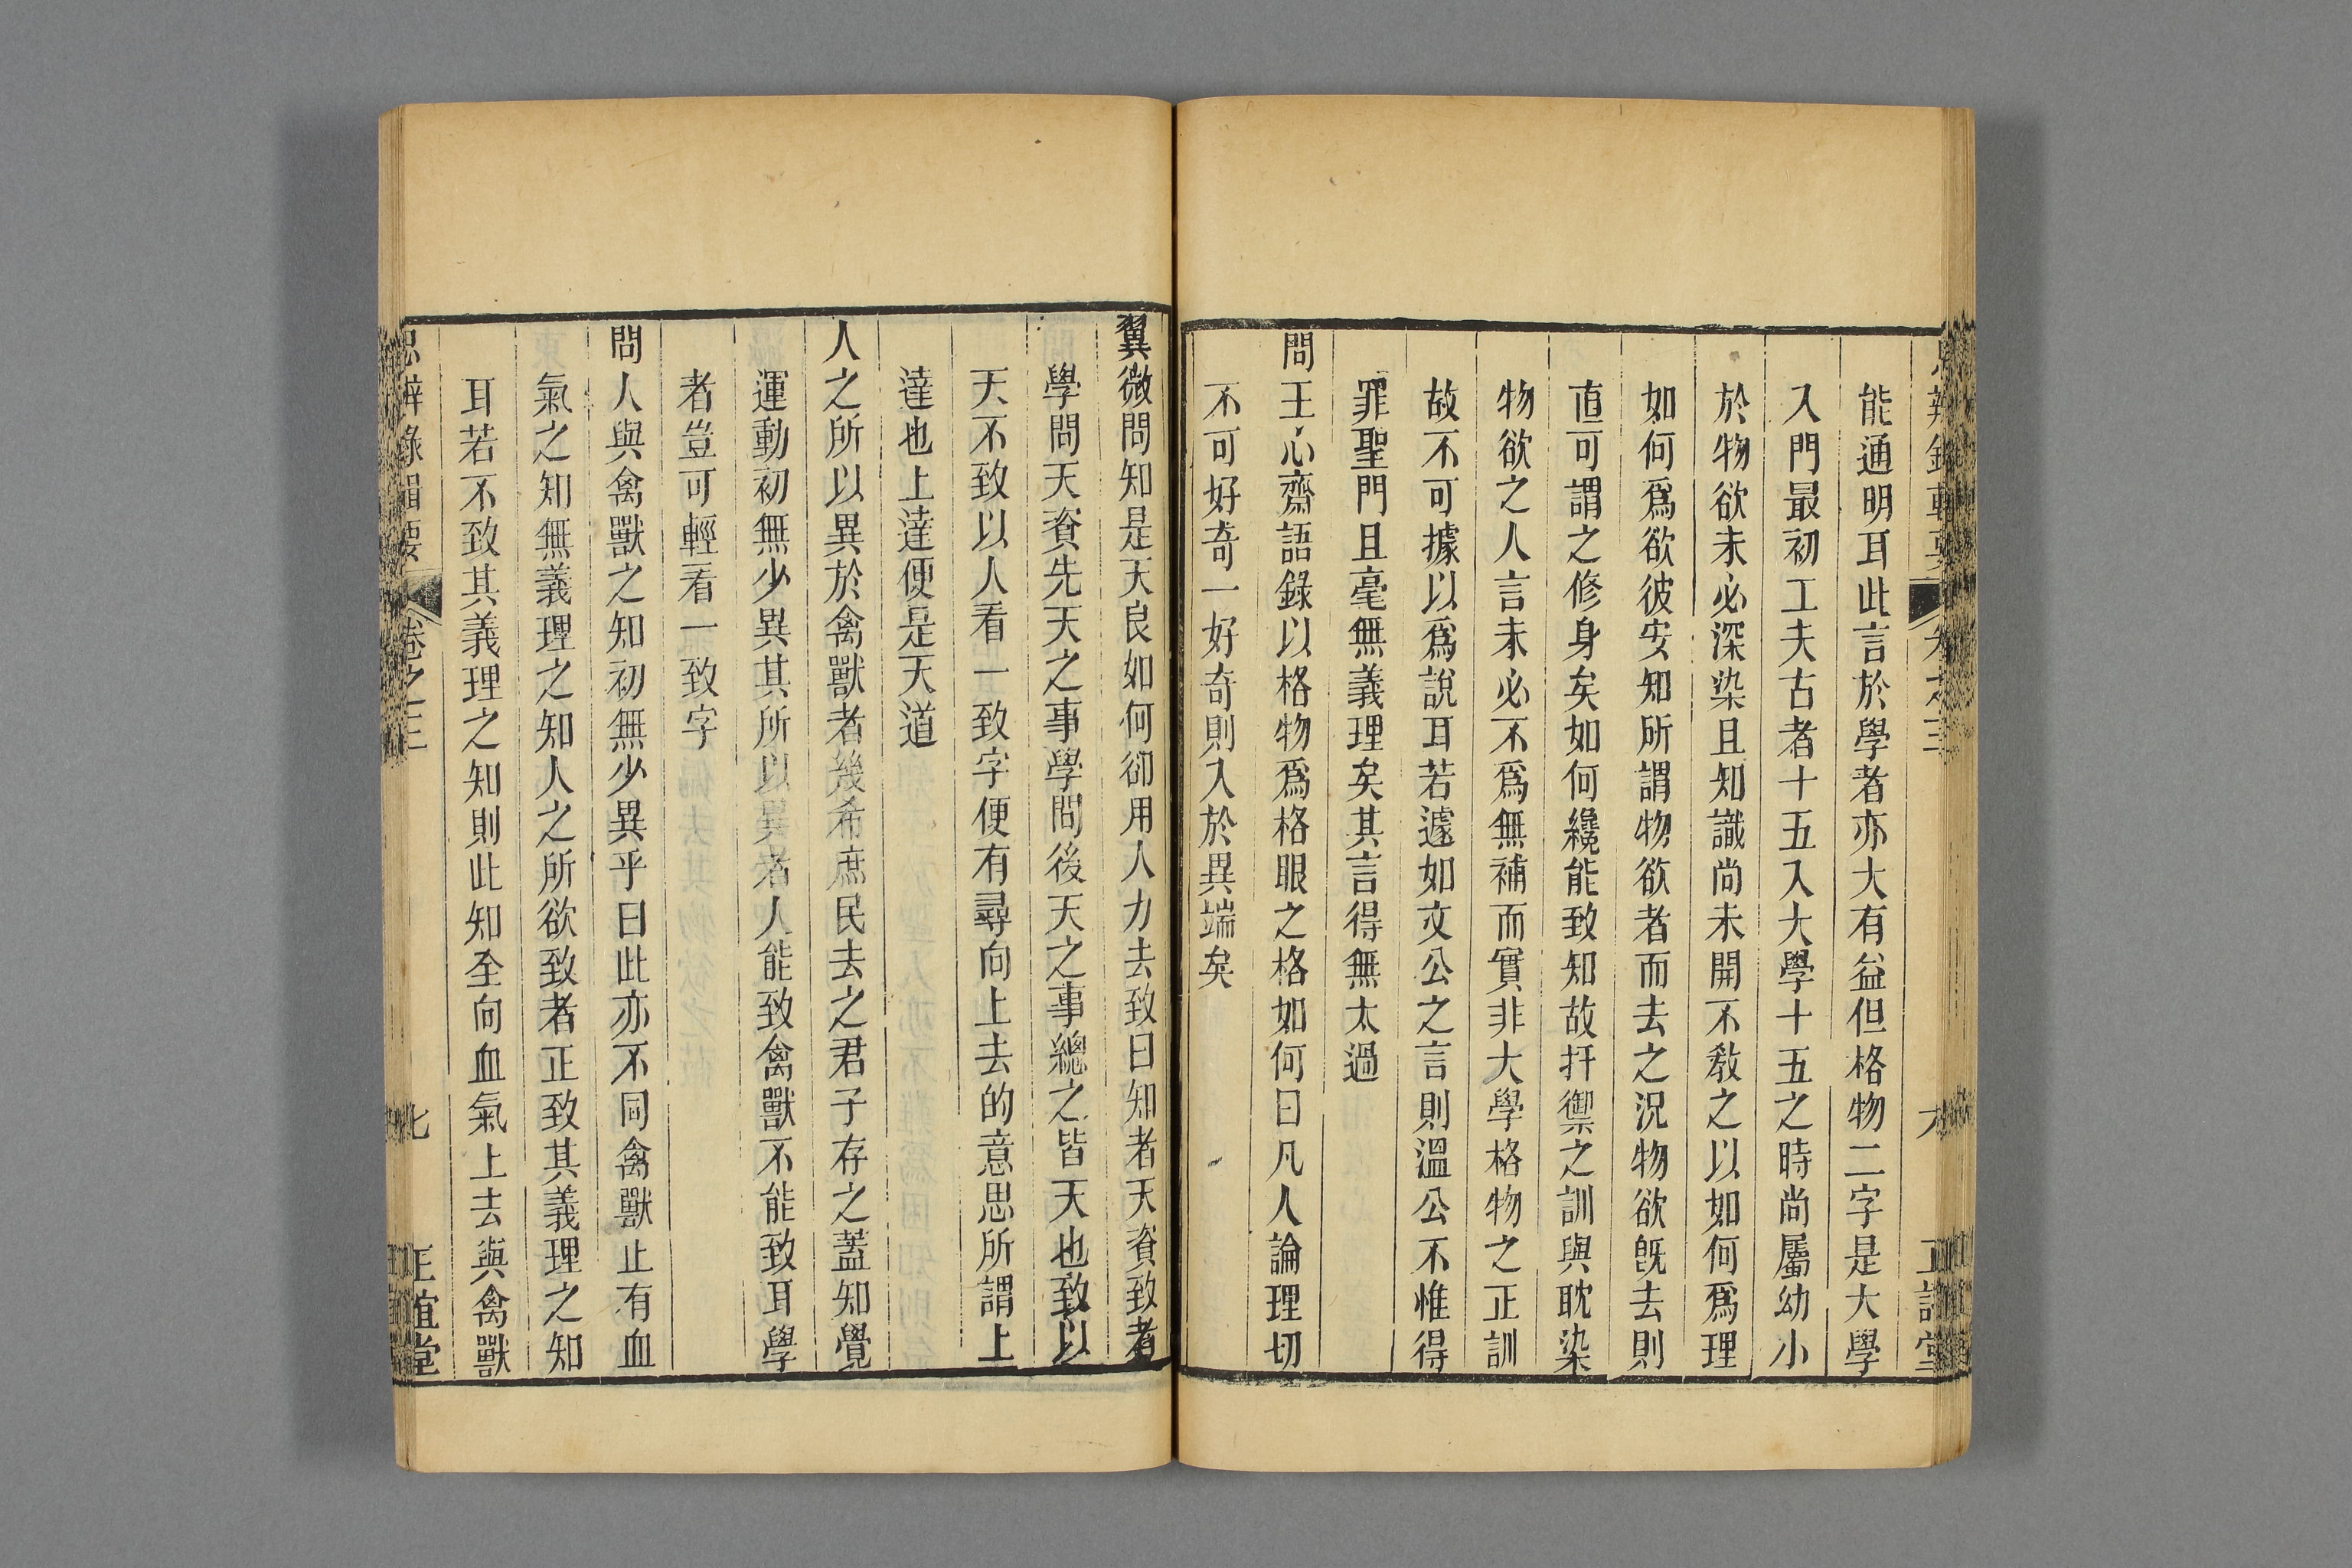 能通明耳此言於學者亦大有益但格物二字是大學
入門最初工夫古者十五入大學十五之時尚屬幼小
於物欲未必深染且知識尚未開不教之以如何爲理
如何爲欲彼安知所謂物欲者而去之況物欲旣去則
直可謂之修身矣如何纔能致知故扞禦之訓與耽染
物欲之人言未必不爲無補而實非大學格物之正訓
故不可據以爲說耳若遽如文公之言則溫公不惟得
罪聖門且毫無義理矣其言得無太過
問王心齋語錄以格物爲格眼之格如何曰凡人論理切
不可好奇一好奇則入於異端矣
翼微問知是天良如何卻用人力去致曰知者天資致者
學問天資先天之事學問後天之事總之皆天也致以
天不致以人看一致字便有尋向上去的意思所謂上
達也上達便是天道
人之所以異於禽獸者幾希庶民去之君子存之蓋知覺
運動初無少異其所以異者人能致禽獸不能致耳學
者豈可輕看一致字
問人與禽獸之知初無少異乎曰此亦不同禽獸止有血
氣之知無義理之知人之所欲致者正致其義理之知
耳若不致其義理之知則此知全向血氣上去與禽獸
思辨錄輯要 卷之三 七 正誼堂